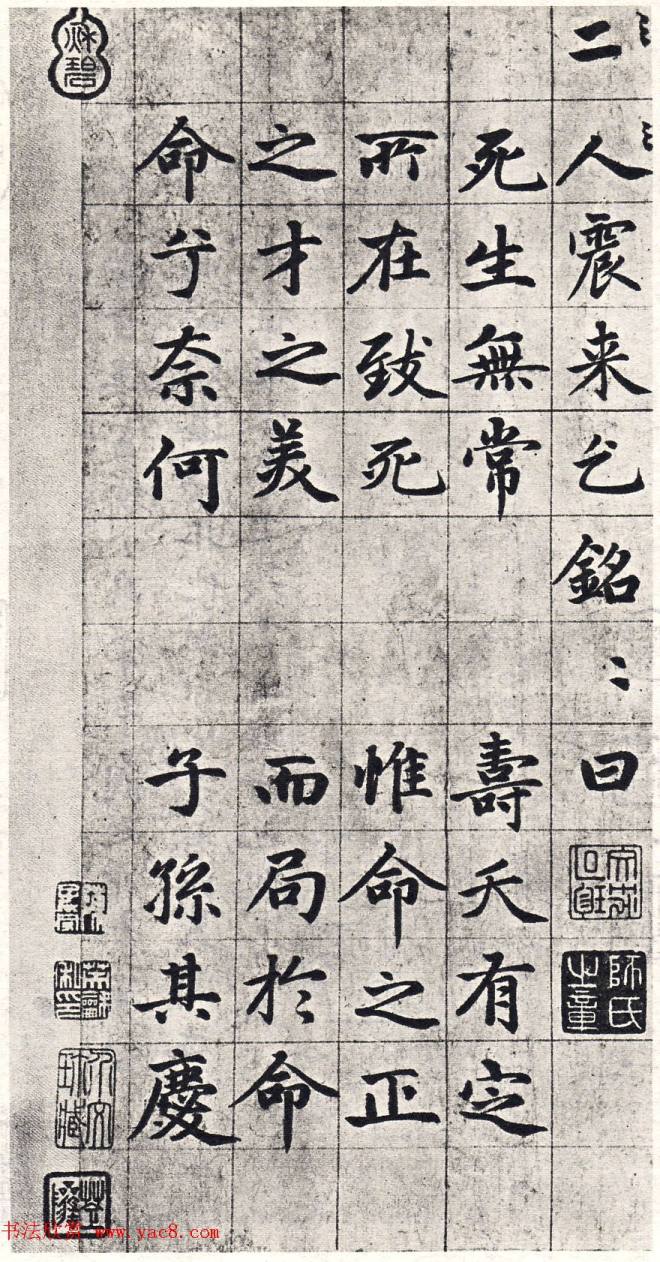 二人震来乞銘〻曰
死生無常　壽夭有定
所在致死　惟命之正
之才之美　而局於命
命兮奈何　子孫其慶
師氏之章
秋碧
书法欣赏 www.yac8.com